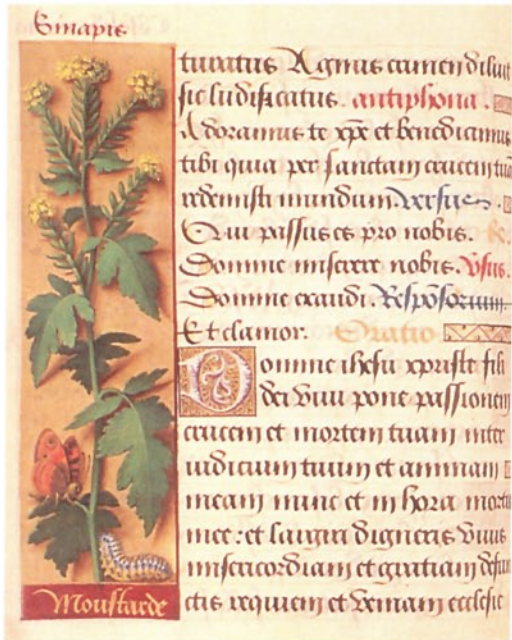 Sinapis
turatus Agnus crimen diluit
sic ludificatus. antiphona.
Adoramus te xpe et benedicimus
tibi quia per sanctam crucem tuā
redemisti mundum. Versus.
Qui passus es pro nobis.
Domine miserere nobis. Vsus.
Domine exaudi. Responsorium.
Et clamor. Oratio
Domine ihesu xpriste fili
dei viui pone passionem
crucem et mortem tuam inter
iudicium tuum et animam
meam nunc et in hora mortis
mee: et largiri digneris viuis
misericordiam et gratiam defun
ctis requiem et veniam ecclesie
Moustarde